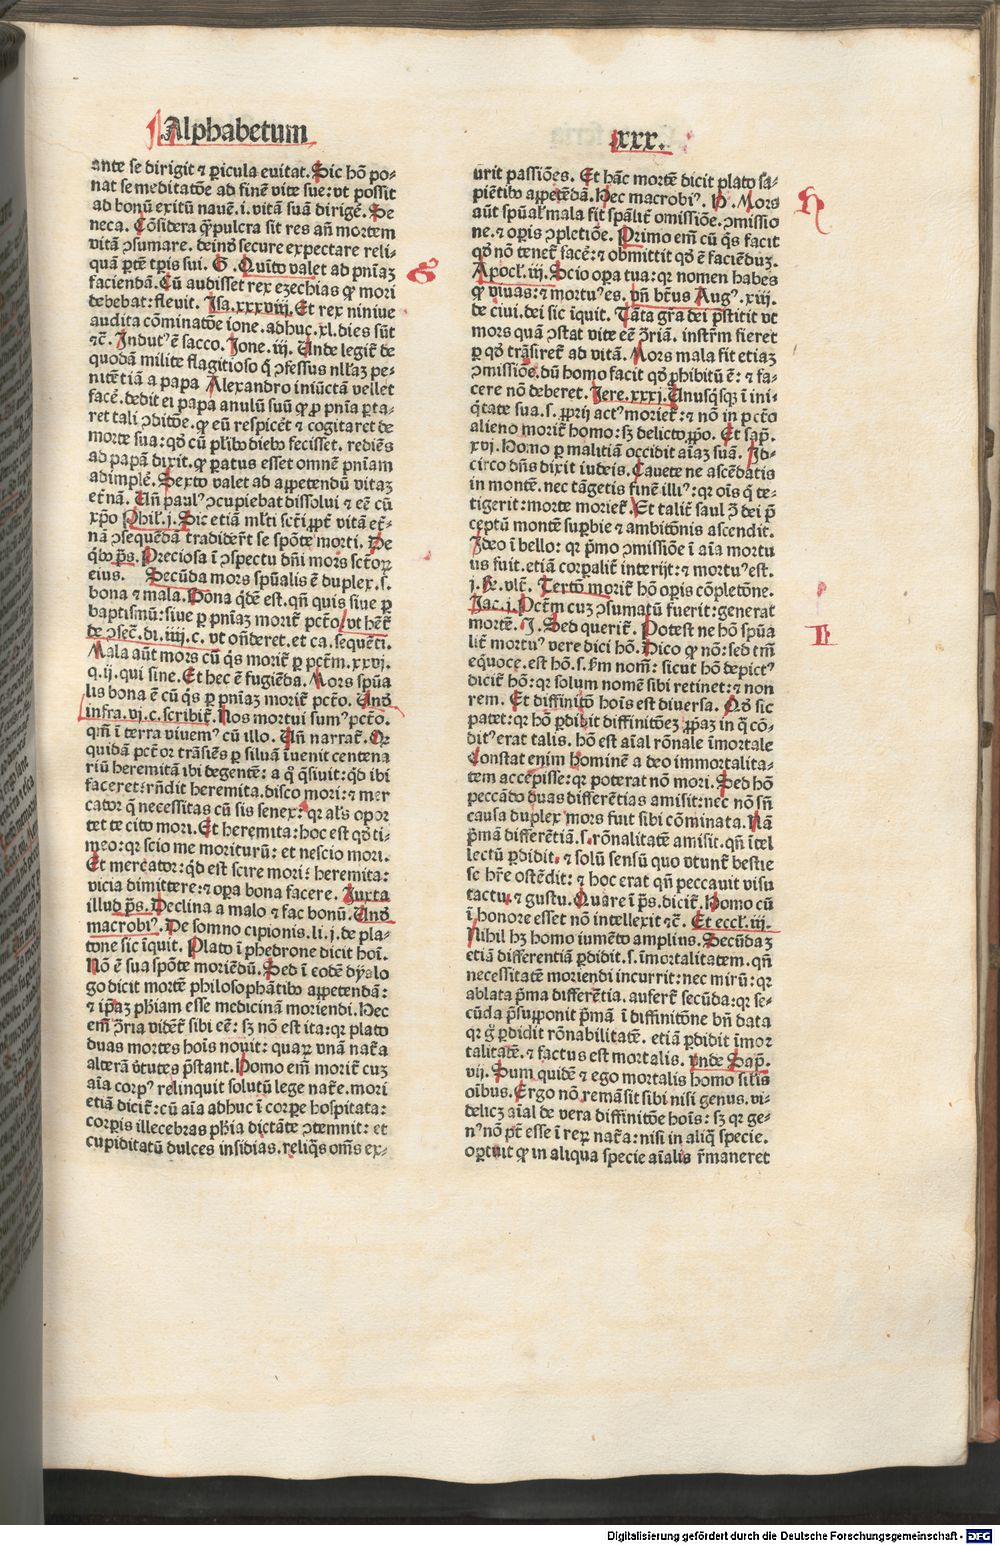 Alphabetum
xxx.
ante se dirigit ⁊ ꝑicula euitat. Sic hō po-
nat se meditatōe ad finē vite sue: vt possit
ad bonū exitū nauē .i. vitā suā dirigē. Se
neca. Cōsidera ꝙ̄ pulcra sit res añ mortem
vitā ꝯsumare. deinď secure expectare reli-
quā ꝑtē tp̄ris sui. G . Quīto valet ad pn̄iaꝫ
faciendā. Cū audisset rex ezechias ꝙ mori
debebat: fleuit. Isa. xxxviij. Et rex niniue
audita cōminatōe ione. adhuc .xl. dies sūt
⁊c̄. Indutꝰ ē sacco. Ione. iij. Unde legit̄ de
quodā milite flagitioso q̇ ꝯfessus nll'aꝫ pe-
nitētiā a papa Alexandro iniūctā vellet
facē. dedit ei papa anulū suū ꝙ ꝓ pn̄ia ꝑta-
ret tali ꝯditōe. ꝙ eū respicēt ⁊ cogitaret de
morte sua: qď cū pl'ibꝰ diebꝰ fecisset. rediēs
ad papā dixit. ꝙ ꝑatus esset omnē pn̄iam
adimplē. Sexto valet ad appetendū vitaꝫ
et̄nā. Uñ paulꝰ ꝯcupiebat dissolui ⁊ eē cū
xp̄o Phil'. j. Sic etiā ml'ti sct̄i ꝓpt̄ vitā et̄-
nā ꝯsequēdā tradider̄t se spōte morti. De
q̇bꝰ ps̄. Preciosa ī ꝯspectu dn̄i mors sct̄oꝝ
eius. Secūda mors spūalis ē duplex. s.
bona ⁊ mala. Bona qd̄ē est. qñ quis siue ꝑ
baptismū: siue ꝑ pn̄iam morit̄ pctō/ vt hēt̄
de ꝯsec̄. di. iiij. c. vt oñderet. et ca. sequēti.
Mala aūt mors cū q̇s morit̄ ꝑ pctm̄. xxvj.
q. ij. qui sine. Et hec ē fugiēda. Mors spūa
lis bona ē cū q̇s ꝑ pn̄iaꝫ morit̄ pctō. Unď
infra. vj. c. scribit̄. Nos mortui sumꝰ pctō.
qm̄ ī terra viuemꝰ cū illo. Uñ narrat̄. Qꝛ
quidā pct̄or trāsiēs ꝑ siluā īuenit centena
riū heremitā ibi degentē: a q̇ q̄siuit: qd̄ ibi
faceret: rn̄dit heremita. disco mori: ⁊ mer
cator q̄ necessitas cū sis senex: qꝛ al's opor
tet te cito mori. Et heremita: hoc est qď ti-
meo: qꝛ scio me moriturū: et nescio mori.
Et mercator: qd̄ est scire mori: heremita:
vicia dimittere: ⁊ opa bona facere. Iuxta
illud ps̄. Declina a malo ⁊ fac bonū. Unď
macrobiꝰ. De somno cipionis. li. j. de pla-
tone sic īquit. Plato ī phedrone dicit hoī.
Nō ē sua spōte moriēdū. Sed ī eodē dyalo
go dicit mortē philosophātibꝰ appetendā:
⁊ ip̄aꝫ phiam esse medicinā moriendi. Hec
em̄ ꝯ̄ria vidēt̄ sibi eē: sꝫ nō est ita: qꝛ plato
duas mortes hoīs nouit: quaꝝ vnā nať'a
alterā v̇tutes p̄stant. Homo em̄ morit̄ cuꝫ
aīa corpꝰ relinquit solutū lege nať'e. mori
etiā dicit̄: cū aīa adhuc ī corꝑe hospitata:
corꝑis illecebras phīa dictāte ꝯtemnit: et
cupiditatū dulces insidias. reliq̇s om̄s ex-
urit passiōes. Et hāc mortē dicit plato sa-
piētibꝰ appetēdā. Hec macrobiꝰ. H . Mors
aūt spūal' mala fit spālit̄ omissiōe. ꝯmissio
ne. ⁊ oꝑis ꝯpletiōe. Primo em̄ cū q̇s facit
qď nō tenet̄ facē: ⁊ obmittit qď ē faciēduꝫ.
Apocl'. iij. Scio opa tua: qꝛ nomen habes
ꝙ viuas: ⁊ mortuꝰ es. vñ bt̄us Augꝰ. xiij.
de ciui. dei sic īquit. Tāta gr̄a dei p̄stitit vt
mors quā ꝯstat vite eē ꝯ̄riā. instrm̄ fieret
ꝑ qď trāsiret̄ ad vitā. Mors mala fit etiaꝫ
ꝯmissiōe. dū homo facit qď ꝓhibitū ē: ⁊ fa-
cere nō deberet. Iere. xxxj. Unusq̇sqꝫ ī ini-
q̇tate sua. s. ꝓprij actꝰ moriet̄: ⁊ nō in pctō
alieno morit̄ homo: sꝫ delicto ꝓpō. Et sap̄.
xvj. Homo ꝑ malitiā occidit aīaꝫ suā. Id-
circo dn̄s dixit iudeis. Cauete ne ascēdatis
in montē. nec tāgetis finē illiꝰ: qꝛ oīs q̇ te-
tigerit: morte moriet̄. Et talit̄ saul ꝯ̄ dei p̄
ceptū montē suꝑbie ⁊ ambitōnis ascendit.
Ideo ī bello: qꝛ p̄mo ꝯmissiōe ī aīa mortu
us fuit. etiā corꝑalit̄ interijt: ⁊ mortuꝰ est.
j. Re. vlt̄. Tertō morit̄ hō oꝑis cōpletōne.
Iac. j. Pctm̄ cuꝫ ꝯsumatū fuerit: generat
mortē. I. Sed querit̄. Potest ne hō spūa
lit̄ mortuꝰ vere dici hō. Dico ꝙ nō: sed tm̄
eq̇uoce. est hō. s. ẜm nom̄: sicut hō depictꝰ
dicit̄ hō: qꝛ solum nomē sibi retinet: ⁊ non
rem. Et diffinitō hoīs est diuersa. Qď sic
patet: qꝛ hō ꝑdidit diffinitōeꝫ ꝓp̄aꝫ in q̇ cō-
ditꝰ erat talis. hō est aīal rōnale īmortale
Constat enim hominē a deo immortalita-
tem accepisse: qꝛ poterat nō mori. Sed hō
peccādo duas differētias amisit: nec nō sn̄
causa duplex mors fuit sibi cōminata. Nā
p̄mā differētiā. s. rōnalitatē amisit. qñ ītel
lectū ꝑdidit. ⁊ solū sensū quo vtunt̄ bestie
se hr̄e ostēdit: ⁊ hoc erat qñ peccauit visu
tactu. ⁊ gustu. Quare ī ps̄. dicit̄. Homo cū
ī honore esset nō intellexit ⁊c̄. Et eccl'. iij.
Nihil hꝫ homo iumēto amplius. Secūdaꝫ
etiā differentiā ꝑdidit. s. īmortalitatem. qñ
necessitatē moriendi incurrit: nec mirū: qꝛ
ablata p̄ma differētia. aufert̄ secūda: qꝛ se-
cūda p̄supponit p̄mā ī diffinitōne bn̄ data
qꝛ gͦ ꝑdidit rōnabilitatē. etiā ꝑdidit īmor
talitatē. ⁊ factus est mortalis. vnde Sap̄.
vij. Sum quidē ⁊ ego mortalis homo sil'is
oībus. Ergo nō remāsit sibi nisi genus. vi-
delicꝫ aīal de vera diffinitōe hoīs: sꝫ qꝛ ge-
nꝰ nō pt̄ esse ī reꝝ nať'a: nisi in aliq̇ specie.
oꝑtuit ꝙ in aliqua specie aīalis r̄maneret
G
H
I
Digitalisierung gefördert durch die Deutsche Forschungsgemeinschaft - DFG